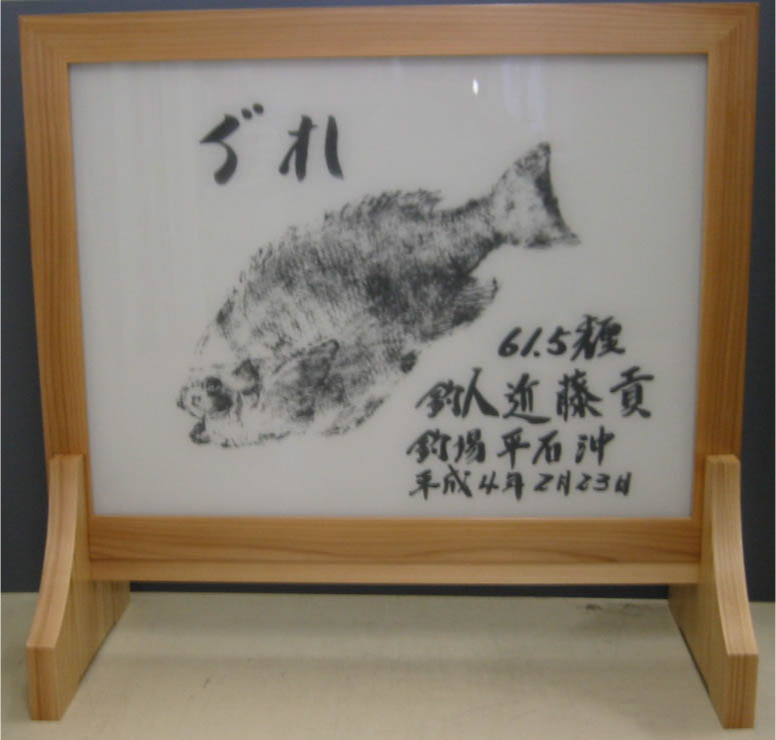 ぐれ
61.5糎
釣人近藤貢
釣場平石沖
平成4年2月23日